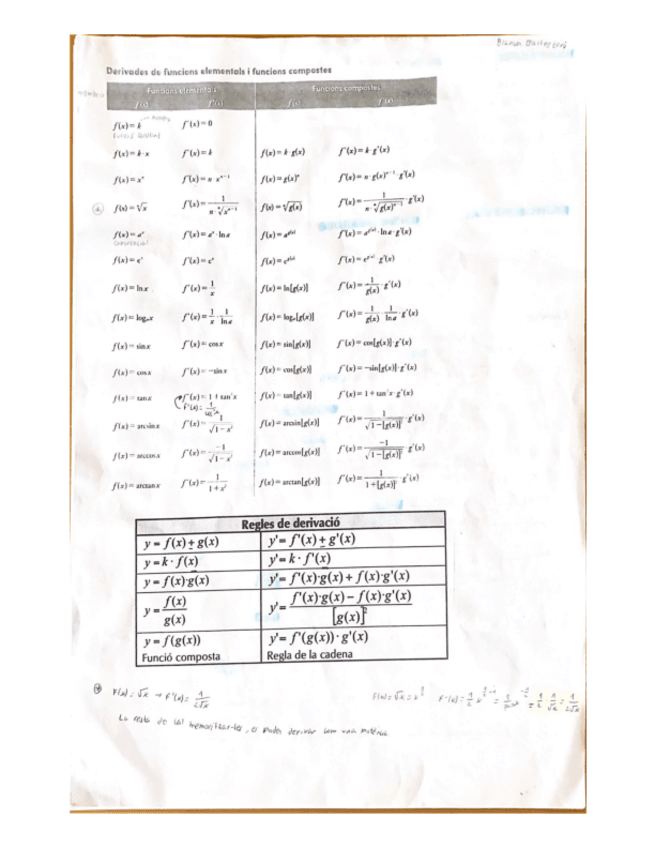 Derivades de funcions elementals i funcions compostes
Funcions elementals Funcions compostes
f(x) f'(x) f(x) f'(x)
f(x) = k f'(x) = 0
f(x) = k · x f'(x) = k f(x) = k · g(x) f'(x) = k · g'(x)
f(x) = xⁿ f'(x) = n · xⁿ⁻¹ f(x) = g(x)ⁿ f'(x) = n · g(x)ⁿ⁻¹ · g'(x)
f(x) = ⁿ√x f'(x) = 1/(n · ⁿ√xⁿ⁻¹) f(x) = ⁿ√g(x) f'(x) = 1/(n · ⁿ√g(x)ⁿ⁻¹) · g'(x)
f(x) = aˣ f'(x) = aˣ · ln a f(x) = a^g(x) f'(x) = a^g(x) · ln a · g'(x)
f(x) = eˣ f'(x) = eˣ f(x) = e^g(x) f'(x) = e^g(x) · g'(x)
f(x) = ln x f'(x) = 1/x f(x) = ln[g(x)] f'(x) = 1/g(x) · g'(x)
f(x) = logₐx f'(x) = 1/x · 1/ln a f(x) = logₐ[g(x)] f'(x) = 1/g(x) · 1/ln a · g'(x)
f(x) = sin x f'(x) = cos x f(x) = sin[g(x)] f'(x) = cos[g(x)] · g'(x)
f(x) = cos x f'(x) = −sin x f(x) = cos[g(x)] f'(x) = −sin[g(x)] · g'(x)
f(x) = tan x f'(x) = 1 + tan²x f(x) = tan[g(x)] f'(x) = 1 + tan²x · g'(x)
f(x) = arcsin x f'(x) = 1/√(1 − x²) f(x) = arcsin[g(x)] f'(x) = 1/√(1 − [g(x)]²) · g'(x)
f(x) = arccos x f'(x) = −1/√(1 − x²) f(x) = arccos[g(x)] f'(x) = −1/√(1 − [g(x)]²) · g'(x)
f(x) = arctan x f'(x) = 1/(1 + x²) f(x) = arctan[g(x)] f'(x) = 1/(1 + [g(x)]²) · g'(x)
Regles de derivació
y = f(x) ± g(x) y' = f'(x) ± g'(x)
y = k · f(x) y' = k · f'(x)
y = f(x)·g(x) y' = f'(x)·g(x) + f(x)·g'(x)
y = f(x)/g(x) y' = (f'(x)·g(x) − f(x)·g'(x))/[g(x)]²
y = f(g(x)) y' = f'(g(x)) · g'(x)
Funció composta Regla de la cadena
f(x) = √x → f'(x) = 1/(2√x) f(x) = √x = x^½